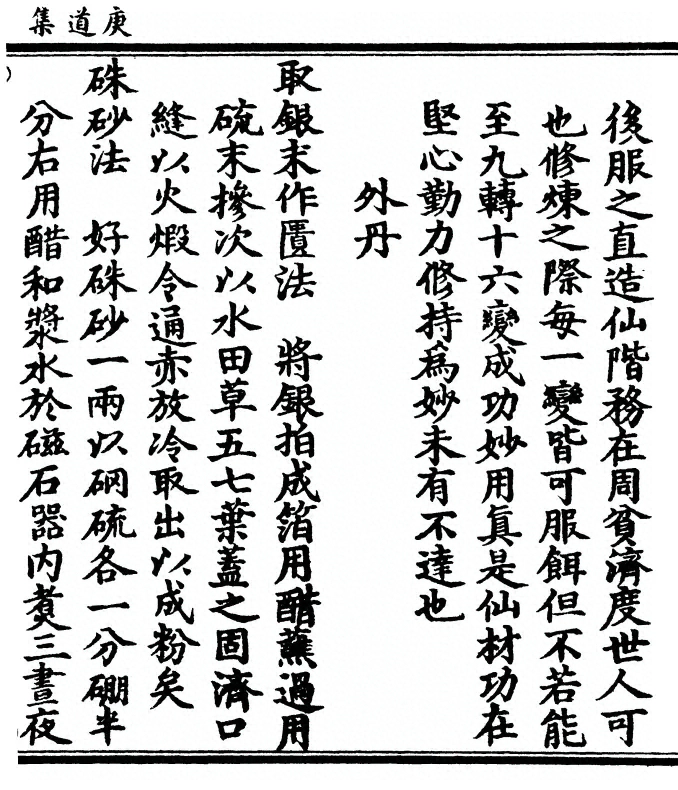 庚道集
後服之直造仙階務在周貧濟度世人可
也修煉之際每一變皆可服餌但不若能
至九轉十六變成功妙用眞是仙材功在
堅心勤力修持爲妙未有不達也
外丹
取銀末作匱法　將銀拍成箔用醋蘸過用
硫末摻次以水田草五七葉蓋之固濟口
縫以火煅令通赤放冷取出以成粉矣
硃砂法　好硃砂一兩以硇硫各一分硼半
分右用醋和漿水於磁石器内煑三晝夜